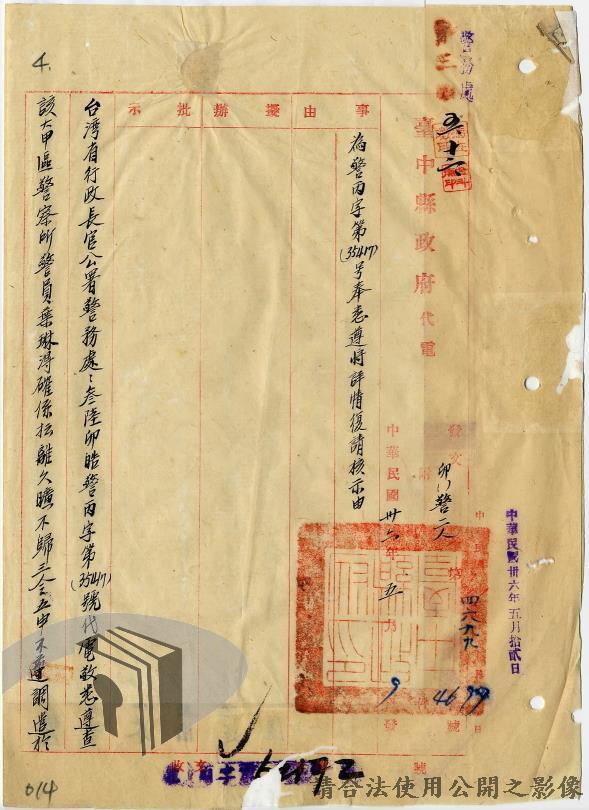 警務處
五十六
臺中縣政府代電
發文
附
卯 警二人
四六九九
中華民國卅六年五月拾貳日
中華民國卅六年五月9日發
4699號
事由擬辦批示
為警丙字第(35417)号奉悉遵將詳情復請核示由
台湾省行政長官公署警務處:叁陆卯皓警丙字第(35417)號代電敬悉遵查
該大甲區警察所警員葉琳淂確係抗離久曠不歸三令五申不遵調遣於
收文 號
5492
4.
014
請合法使用公開之影像